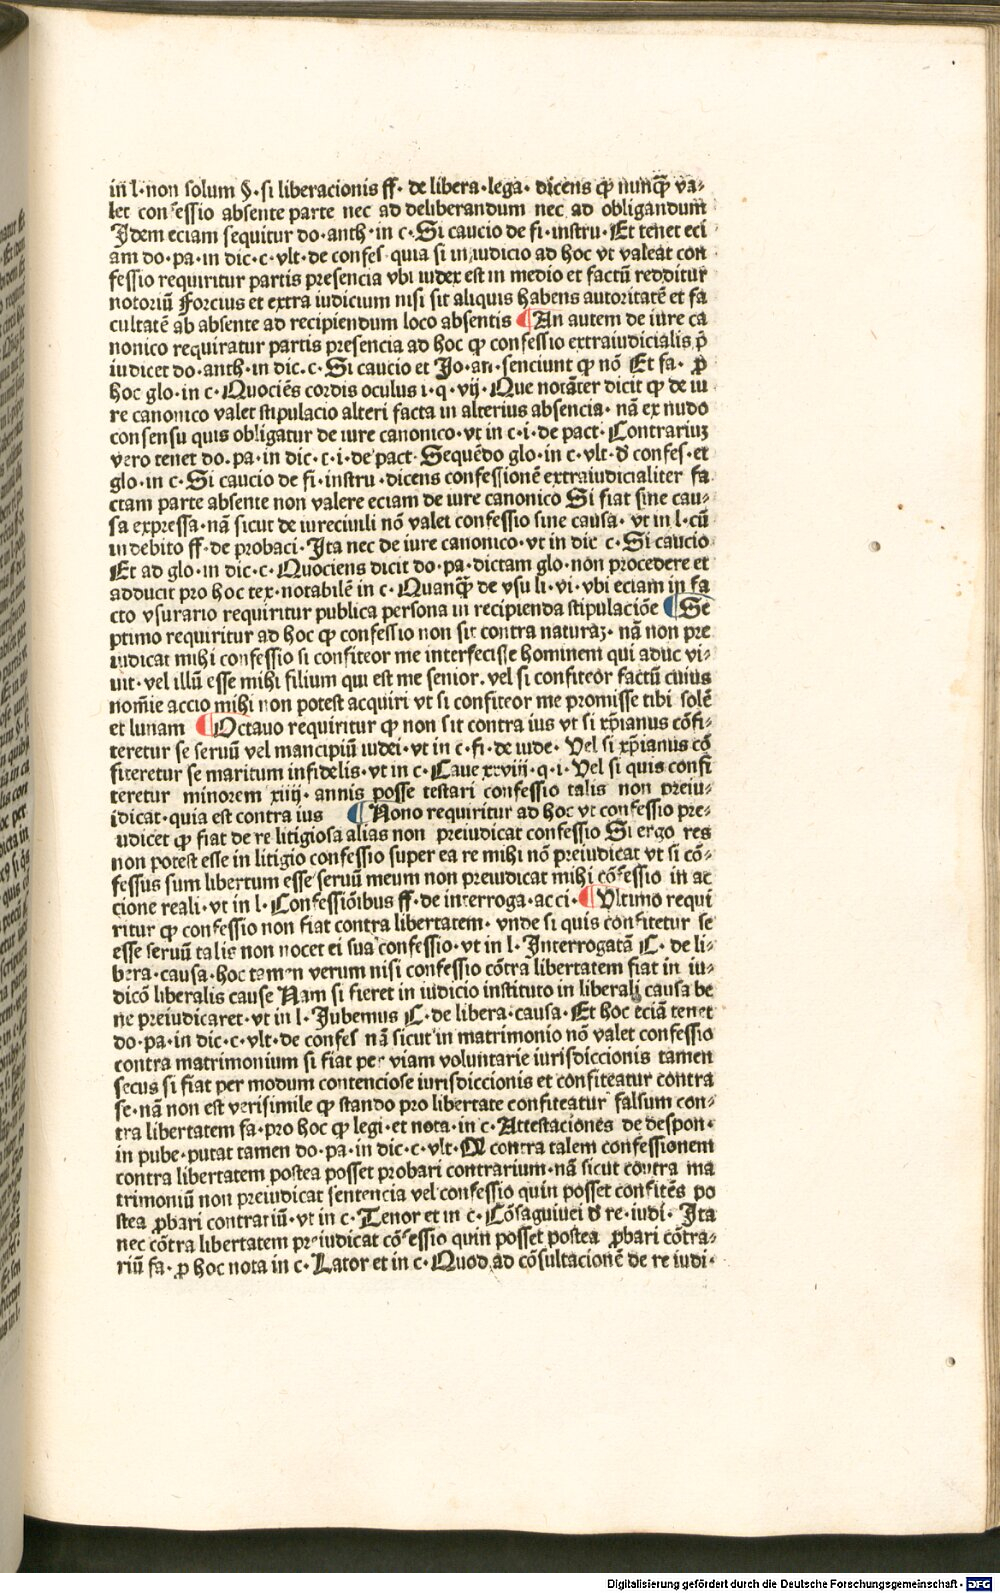 in l·non solum §·si liberacionis ff·de libera·lega·dicens ꝙ nunꝗ̃ va⸗
let confessio absente parte nec ad deliberandum nec ad obligandum
Idem eciam sequitur do·anth·in c·Si caucio de fi·instru·Et tenet eci
am do·pa·in dic·c·vlt·de confes·quia si in iudicio ad hoc vt valeat con
fessio requiritur partis presencia vbi iudex est in medio et factū redditur
notoriū Forcius et extra iudicium nisi sit aliquis habens autoritatē et fa
cultatē ab absente ad recipiendum loco absentis ¶An autem de iure ca
nonico requiratur partis presencia ad hoc ꝙ confessio extraiudicialis p̄
iudicet do·anth·in dic·c·Si caucio et Jo·an·senciunt ꝙ nō Et fa·ꝓ
hoc glo·in c·Quociēs cordis oculus i·q·vij·Que notāter dicit ꝙ de iu
re canonico valet stipulacio alteri facta in alterius absencia·nā ex nudo
consensu quis obligatur de iure canonico·vt in c·i·de pact·Contrariuꝫ
vero tenet do·pa·in dic·c·i·de pact·Sequēdo glo·in c·vlt·đ confes·et
glo·in c·Si caucio de fi·instru·dicens confessionē extraiudicialiter fa
ctam parte absente non valere eciam de iure canonico Si fiat sine cau⸗
sa expressa·nā sicut de iureciuili nō valet confessio sine causa·vt in l·cū
indebito ff·de probaci·Ita nec de iure canonico·vt in dic c·Si caucio
Et ad glo·in dic·c·Quociens dicit do·pa·dictam glo·non procedere et
adducit pro hoc tex·notabilē in c·Quanꝗ̃ de vsu li·vi·vbi eciam in fa
cto vsurario requiritur publica persona in recipienda stipulaciōe ¶Se
ptimo requiritur ad hoc ꝙ confessio non sit contra naturaꝫ·nā non pre
iudicat mihi confessio si confiteor me interfecisse hominem qui aduc vi⸗
uit·vel illū esse mihi filium qui est me senior·vel si confiteor factū cuius
nomīe accio mihi non potest acquiri vt si confiteor me promisse tibi solē
et lunam ¶Octauo requiritur ꝙ non sit contra ius vt si xp̄ianus cōfi⸗
teretur se seruū vel mancipiū iudei·vt in c·fi·de iude·Vel si xp̄ianus cō
fiteretur se maritum infidelis·vt in c·Caue xxviii·q·i·Vel si quis confi
teretur minorem xiiij·annis posse testari confessio talis non preiu⸗
idicat·quia est contra ius ¶Nono requiritur ad hoc vt confessio pre⸗
udicet ꝙ fiat de re litigiosa alias non preiudicat confessio Si ergo res
non potest esse in litigio confessio super ea re mihi nō preiudicat vt si cō⸗
fessus sum libertum esse seruū meum non preiudicat mihi cōfessio in ac
cione reali·vt in l·Confessiōibus ff·de interroga·acci·¶Vltimo requi
ritur ꝙ confessio non fiat contra libertatem·vnde si quis confitetur se
esse seruū talis non nocet ei sua confessio·vt in l·Interrogatā C·de li⸗
bera·causa·hoc tamen verum nisi confessio cōtra libertatem fiat in iu⸗
dicō liberalis cause Nam si fieret in iudicio instituto in liberali causa be
ne preiudicaret·vt in l·Iubemus C·de libera·causa·Et hoc eciā tenet
do·pa·in dic·c·vlt·de confes nā sicut in matrimonio nō valet confessio
contra matrimonium si fiat per viam voluntarie iurisdiccionis tamen
secus si fiat per modum contenciose iurisdiccionis et confiteatur contra
se·nā non est verisimile ꝙ stando pro libertate confiteatur falsum con⸗
tra libertatem fa·pro hoc ꝙ legi·et nota·in c·Attestaciones de despon·
in pube·putat tamen do·pa·in dic·c·vlt·Q contra talem confessionem
contra libertatem postea posset probari contrarium·nā sicut contra ma
trimoniū non preiudicat sentencia vel confessio quin posset confitēs po
stea ꝓbari contrariū·vt in c·Tenor et in c·Cōsaguinei đ re·iudi·Ita
nec cōtra libertatem preiudicat cōfessio quin posset postea ꝓbari cōtra⸗
riū fa·ꝓ hoc nota in c·Lator et in c·Quod ad cōsultacionē de re iudi·
Digitalisierung gefördert durch die Deutsche Forschungsgemeinschaft - DFG